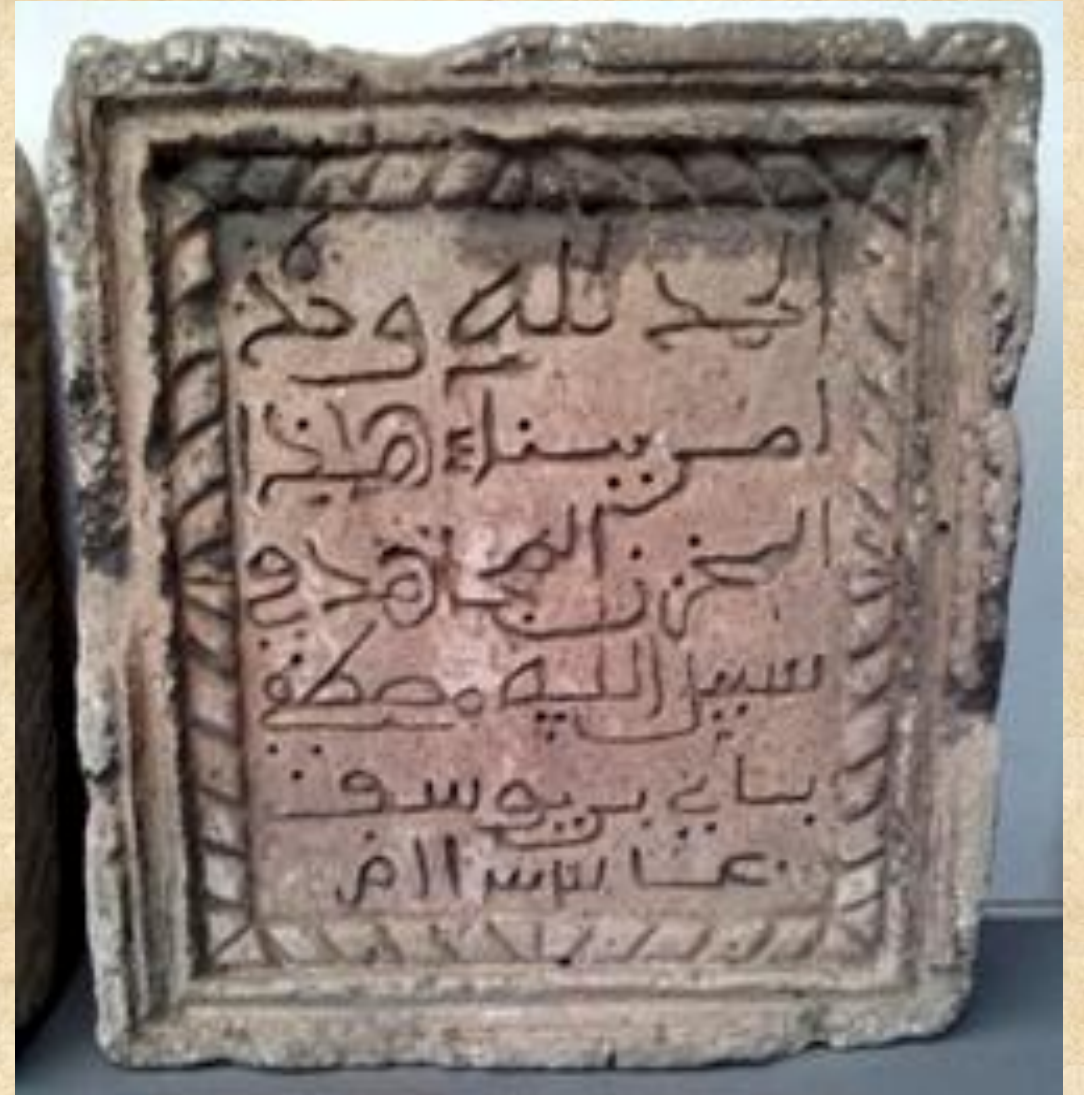 الحمد لله وحده
امر ببناء هاذا
المخزن المجاهد في
سبيل الله مصطفى
بن يوسف